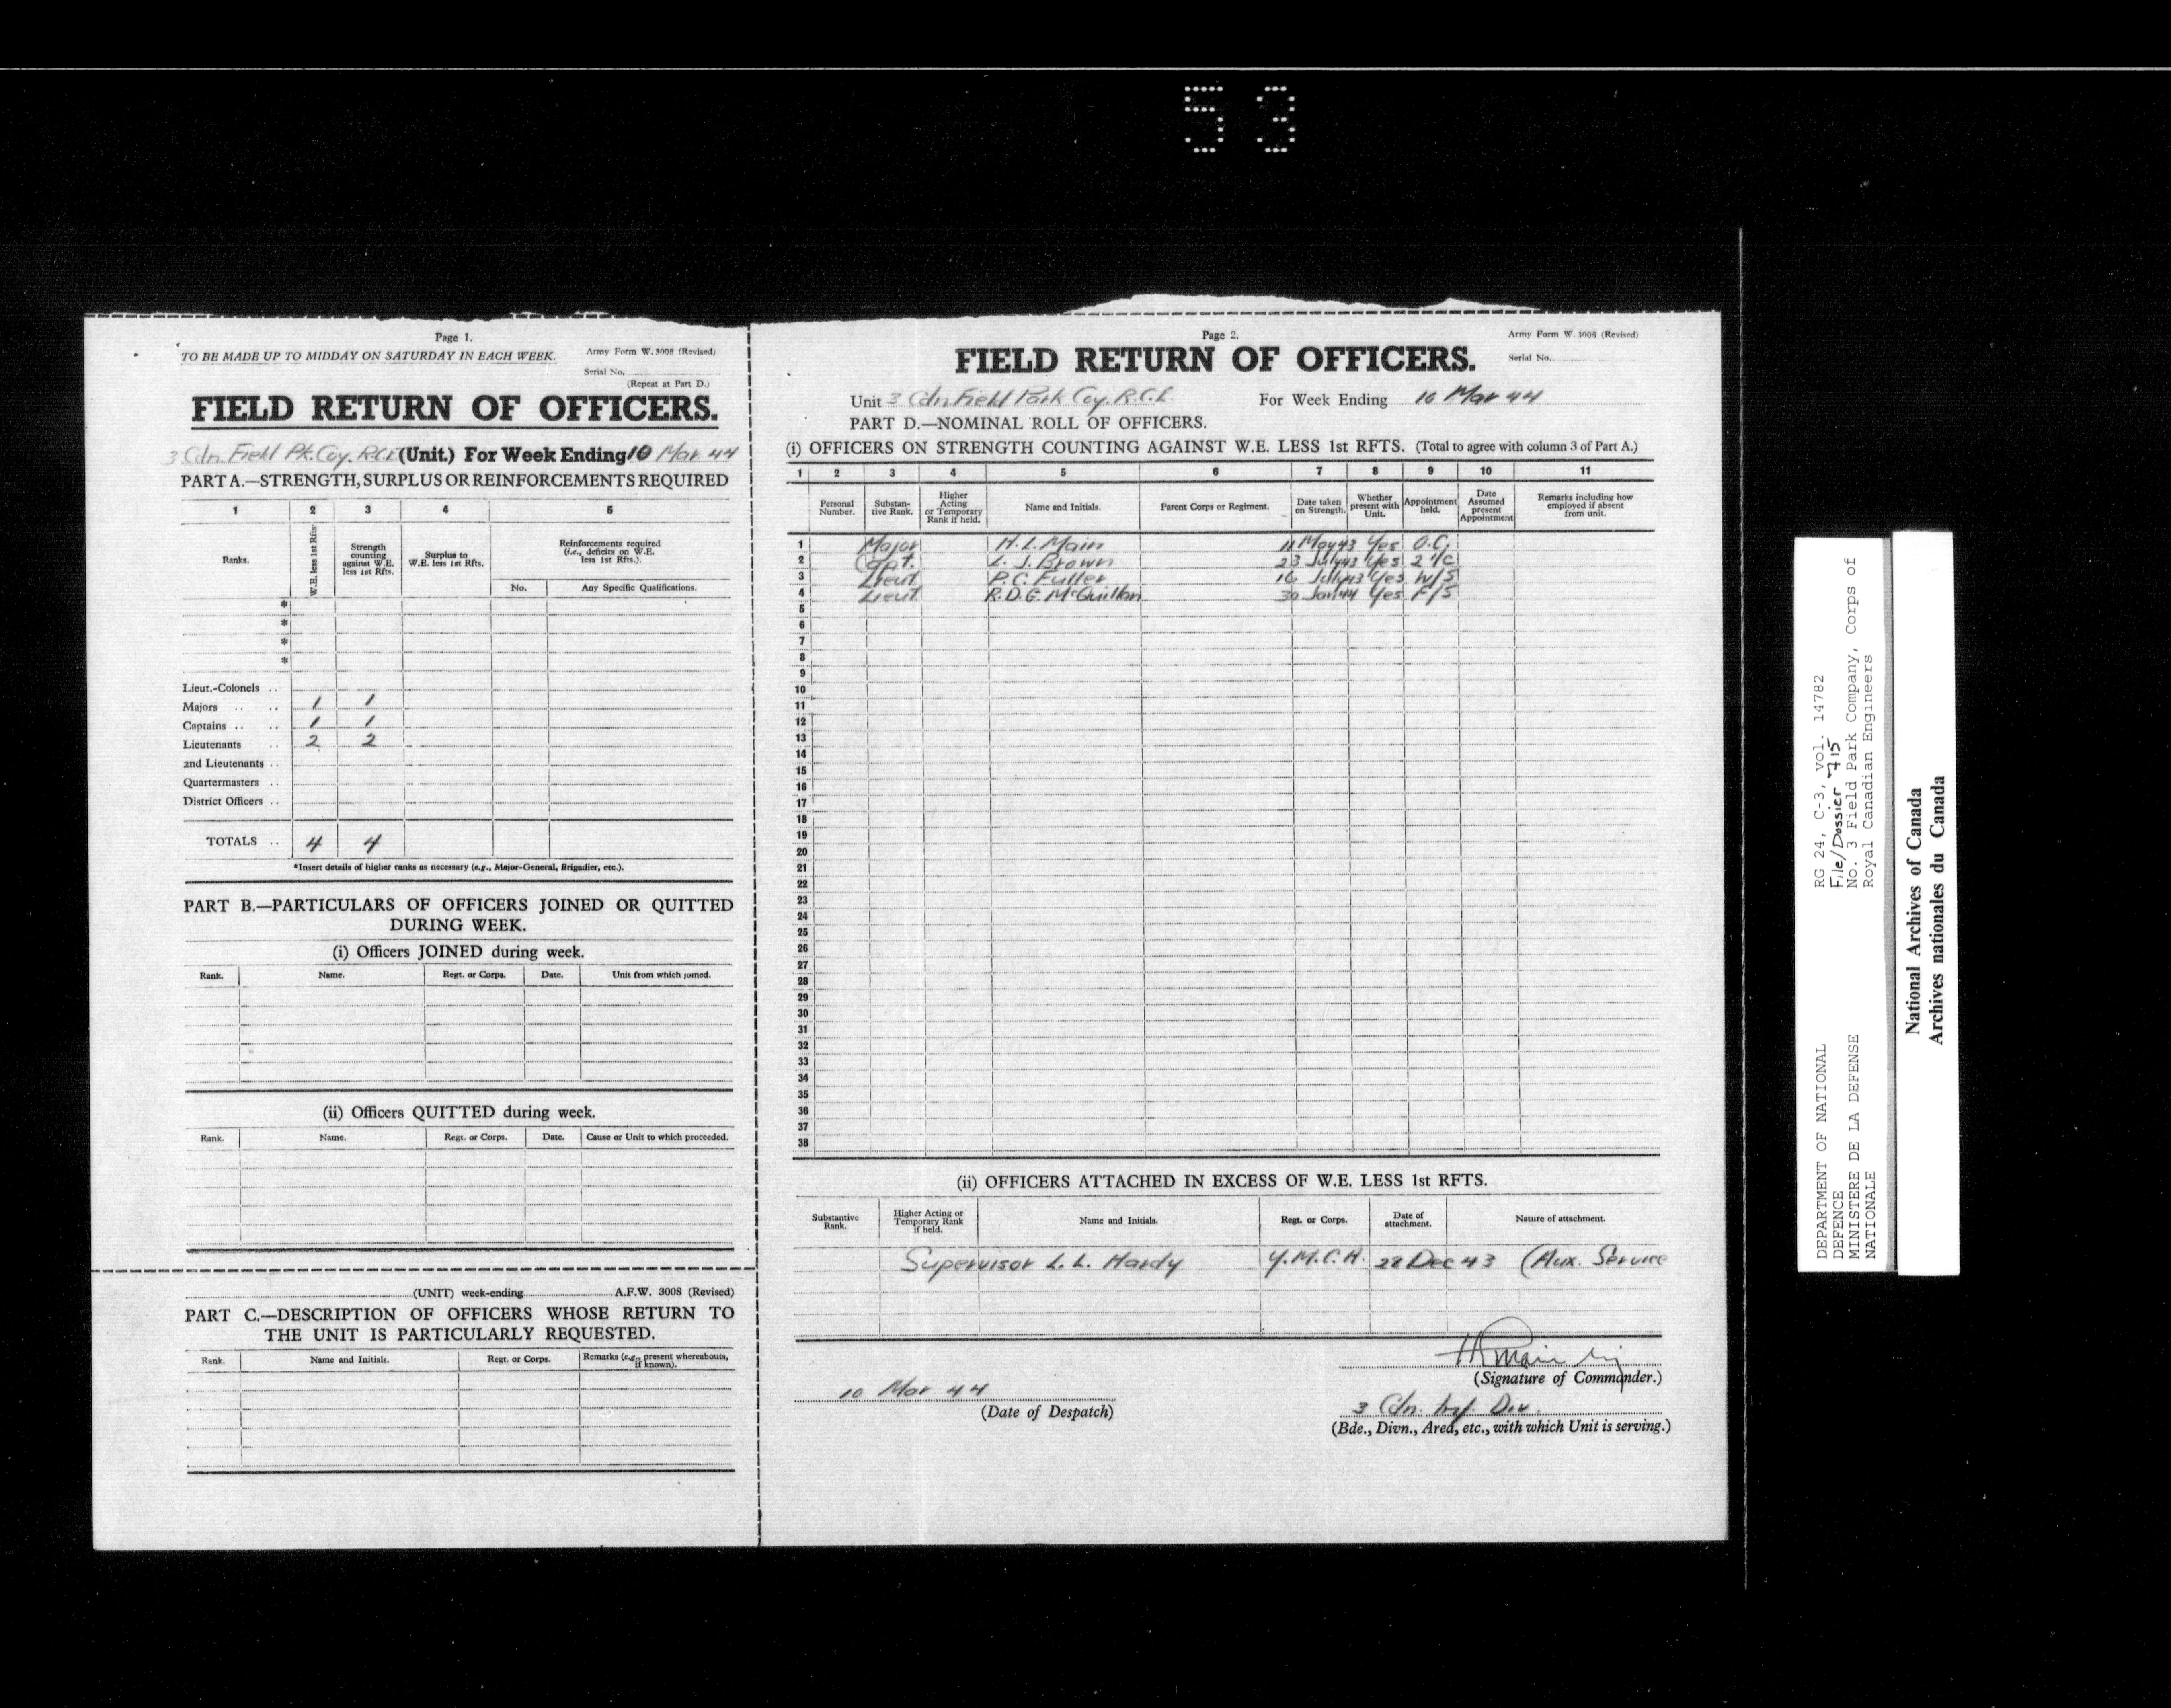 53
Page 1.
TO BE MADE UP TO MIDDAY ON SATURDAY IN EACH WEEK.
Army Form W. 3008 (Revised)
Serial No.
(Repeat at Part D.)
FIELD RETURN OF OFFICERS.
3 Cdn. Field Pk. Coy. RCE (Unit.) For Week Ending 10 Mar 44
PART A.—STRENGTH, SURPLUS OR REINFORCEMENTS REQUIRED
1 2 3 4 5
Ranks. W.E. less 1st Rfts. Strength counting against W.E. less 1st Rfts. Surplus to W.E. less 1st Rfts. Reinforcements required (i.e., deficits on W.E. less 1st Rfts.).
No. Any Specific Qualifications.
*
*
*
*
Lieut.-Colonels ..
Majors .. .. 1 1
Captains .. .. 1 1
Lieutenants .. 2 2
2nd Lieutenants ..
Quartermasters ..
District Officers ..
TOTALS .. 4 4
*Insert details of higher ranks as necessary (e.g., Major-General, Brigadier, etc.).
PART B.—PARTICULARS OF OFFICERS JOINED OR QUITTED
DURING WEEK.
(i) Officers JOINED during week.
Rank. Name. Regt. or Corps. Date. Unit from which joined.
(ii) Officers QUITTED during week.
Rank. Name. Regt. or Corps. Date. Cause or Unit to which proceeded.
(UNIT) week-ending A.F.W. 3008 (Revised)
PART C.—DESCRIPTION OF OFFICERS WHOSE RETURN TO
THE UNIT IS PARTICULARLY REQUESTED.
Rank. Name and Initials. Regt. or Corps. Remarks (e.g., present whereabouts, if known).
Page 2.
Army Form W. 3008 (Revised)
FIELD RETURN OF OFFICERS.
Serial No.
Unit 3 Cdn Field Park Coy. R.C.E. For Week Ending 10 Mar 44
PART D.—NOMINAL ROLL OF OFFICERS.
(i) OFFICERS ON STRENGTH COUNTING AGAINST W.E. LESS 1st RFTS. (Total to agree with column 3 of Part A.)
1 2 3 4 5 6 7 8 9 10 11
Personal Number. Substan-tive Rank. Higher Acting or Temporary Rank if held. Name and Initials. Parent Corps or Regiment. Date taken on Strength. Whether present with Unit. Appointment held. Date Assumed present Appointment Remarks including how employed if absent from unit.
1 Major H.L. Main 11 May 43 Yes O.C.
2 Capt. L. J. Brown 23 July 43 Yes 2 i/c
3 Lieut P.C. Fuller 16 July 43 Yes W/S
4 Lieut R.D.G. McQuillan 30 Jan 44 Yes F/S
5
6
7
8
9
10
11
12
13
14
15
16
17
18
19
20
21
22
23
24
25
26
27
28
29
30
31
32
33
34
35
36
37
38
(ii) OFFICERS ATTACHED IN EXCESS OF W.E. LESS 1st RFTS.
Substantive Rank. Higher Acting or Temporary Rank if held. Name and Initials. Regt. or Corps. Date of attachment. Nature of attachment.
Supervisor L. L. Hardy Y.M.C.A. 22 Dec 43 (Aux. Service
HL Main Maj
(Signature of Commander.)
10 Mar 44
(Date of Despatch)
3 Cdn. Inf. Div.
(Bde., Divn., Area, etc., with which Unit is serving.)
RG 24, C-3, vol. 14782
File/Dossier 715
No. 3 Field Park Company, Corps of
Royal Canadian Engineers
DEPARTMENT OF NATIONAL
DEFENCE
MINISTERE DE LA DEFENSE
NATIONALE
National Archives of Canada
Archives nationales du Canada